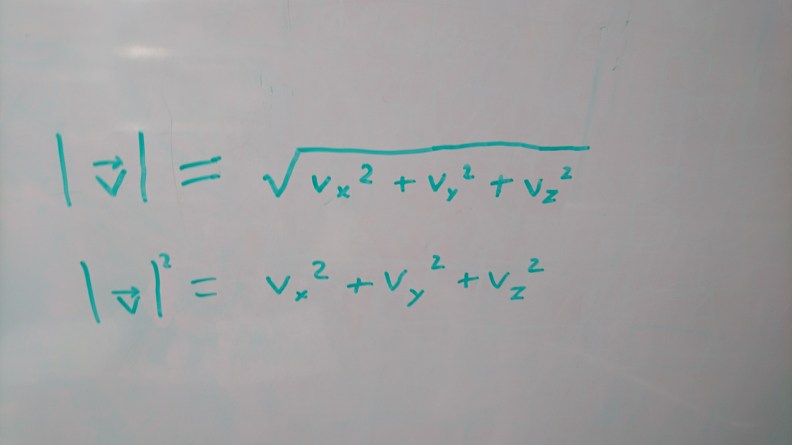 |v⃗| = √(vₓ² + vᵧ² + v_z²)
|v⃗|² = vₓ² + vᵧ² + v_z²